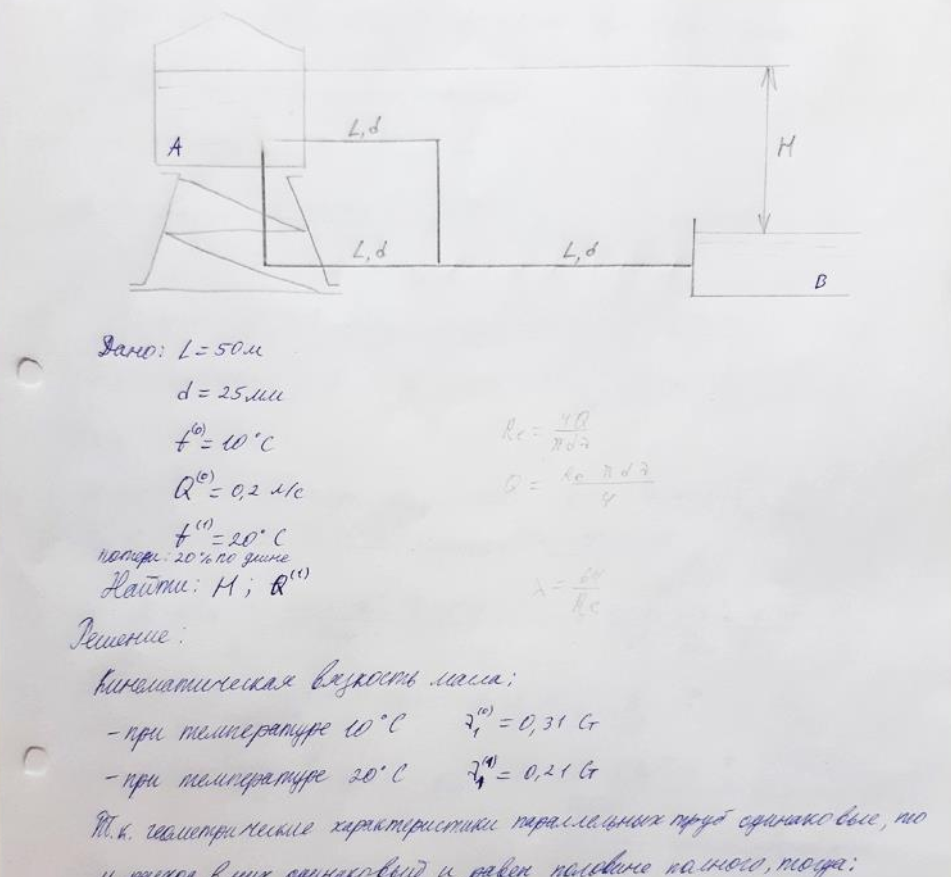 L, d
H
A
L, d
L, d
B
Дано: L = 50 м
d = 25 мм
t⁽⁰⁾ = 10°C
Re = 4Q / πdν
Q⁽⁰⁾ = 0,2 л/с
Q = Re πdν / 4
t⁽¹⁾ = 20°C
потери: 20% по длине
Найти: H; Q⁽¹⁾
λ = 64 / Re
Решение:
Кинематическая вязкость масла:
- при температуре 10°C ν₁⁽⁰⁾ = 0,31 Ст
- при температуре 20°C ν₁⁽¹⁾ = 0,21 Ст
Т.к. геометрические характеристики параллельных труб одинаковые, то
и расход в них одинаковый и равен половине полного, тогда: